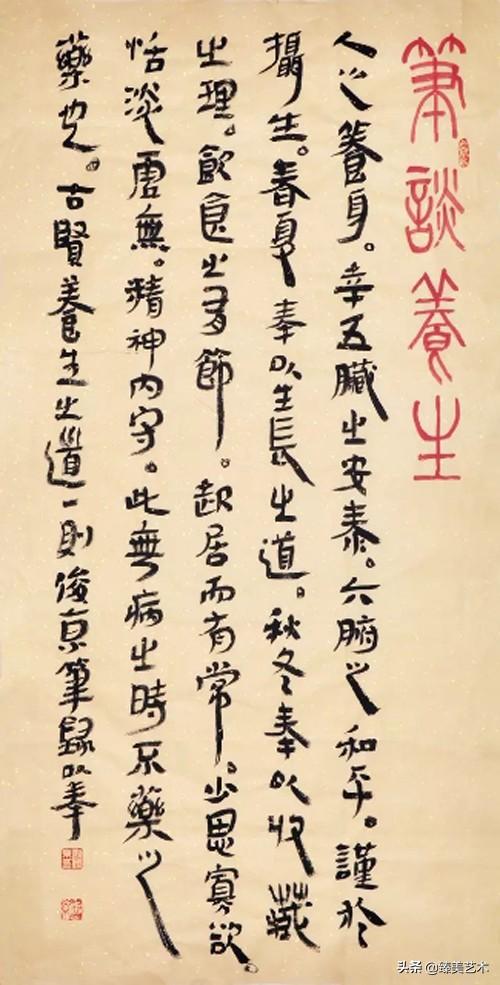 筆談養生
人之養身。幸五臟之安泰。六腑之和平。謹於
攝生。春夏奉以生長之道。秋冬奉以收藏
之理。飲食之有節。起居而有常。少思寡欲。
恬淡虛無。精神内守。此無病之時不藥之
藥也。古賢養生之道一則俊京筆録以奉
头条 @臻美艺术